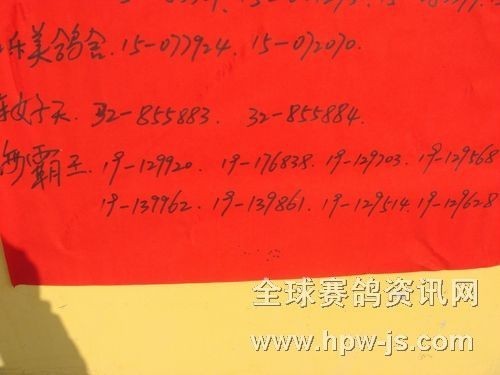 乐美鸽舍.15-077924.15-072070.
32-855883. 32-855884.
海霸王.19-129920. 19-176838. 19-129703. 19-129568
19-139962. 19-139861. 19-129514. 19-129628
全球赛鸽资讯网
www.hpw-js.com